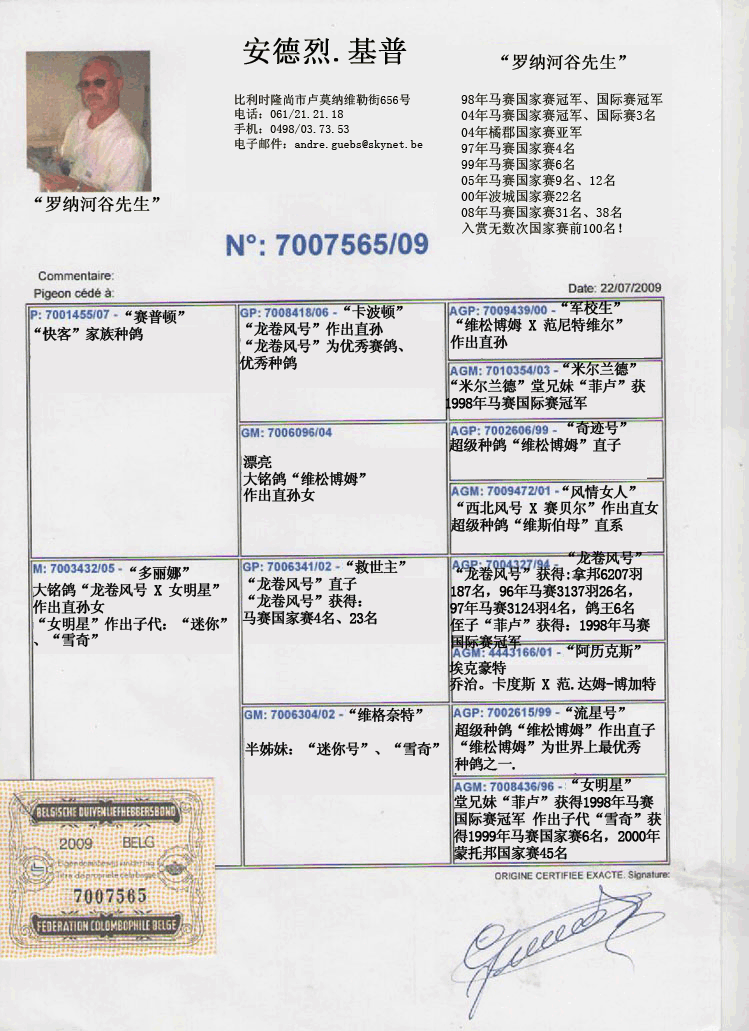 安德烈.基普
“罗纳河谷先生”
比利时隆尚市卢莫纳维勒街656号
电话：061/21.21.18
手机：0498/03.73.53
电子邮件：andre.guebs@skynet.be
98年马赛国家赛冠军、国际赛冠军
04年马赛国家赛冠军、国际赛3名
04年橘郡国家赛亚军
97年马赛国家赛4名
99年马赛国家赛6名
05年马赛国家赛9名、12名
00年波城国家赛22名
08年马赛国家赛31名、38名
入赏无数次国家赛前100名!
“罗纳河谷先生”
N°: 7007565/09
Commentaire:
Pigeon cédé à:
Date: 22/07/2009
P: 7001455/07 - “赛普顿”
“快客”家族种鸽
GP: 7008418/06 - “卡波顿”
“龙卷风号”作出直孙
“龙卷风号”为优秀赛鸽、
优秀种鸽
AGP: 7009439/00 - “军校生”
“维松博姆 X 范尼特维尔”
作出直孙
AGM: 7010354/03 - “米尔兰德”
“米尔兰德”堂兄妹“菲卢”获
1998年马赛国际赛冠军
GM: 7006096/04
漂亮
大铭鸽“维松博姆”
作出直孙女
AGP: 7002606/99 - “奇迹号”
超级种鸽“维松博姆”直子
AGM: 7009472/01 - “风情女人”
“西北风号 X 赛贝尔”作出直女
超级种鸽“维斯伯母”直系
M: 7003432/05 - “多丽娜”
大铭鸽“龙卷风号 X 女明星”
作出直孙女
“女明星”作出子代：“迷你”
、“雪奇”
GP: 7006341/02 - “救世主”
“龙卷风号”直子
“龙卷风号”获得：
马赛国家赛4名、23名
AGP: 7004327/94 - “龙卷风号”
“龙卷风号”获得:拿邦6207羽
187名，96年马赛3137羽26名，
97年马赛3124羽4名，鸽王6名
侄子“菲卢”获得：1998年马赛
国际赛冠军
AGM: 4443166/01 - “阿历克斯”
埃克豪特
乔治。卡度斯 X 范.达姆-博加特
GM: 7006304/02 - “维格奈特”
半姊妹：“迷你号”、“雪奇”
AGP: 7002615/99 - “流星号”
超级种鸽“维松博姆”作出直子
“维松博姆”为世界上最优秀
种鸽之一.
AGM: 7008436/96 - “女明星”
堂兄妹“菲卢”获得1998年马赛
国际赛冠军 作出子代“雪奇”获
得1999年马赛国家赛6名，2000年
蒙托邦国家赛45名
BELGISCHE DUIVENLIEFHEBBERSBOND
2009 BELG
7007565
FEDERATION COLOMBOPHILE BELGE
ORIGINE CERTIFIEE EXACTE. Signature: